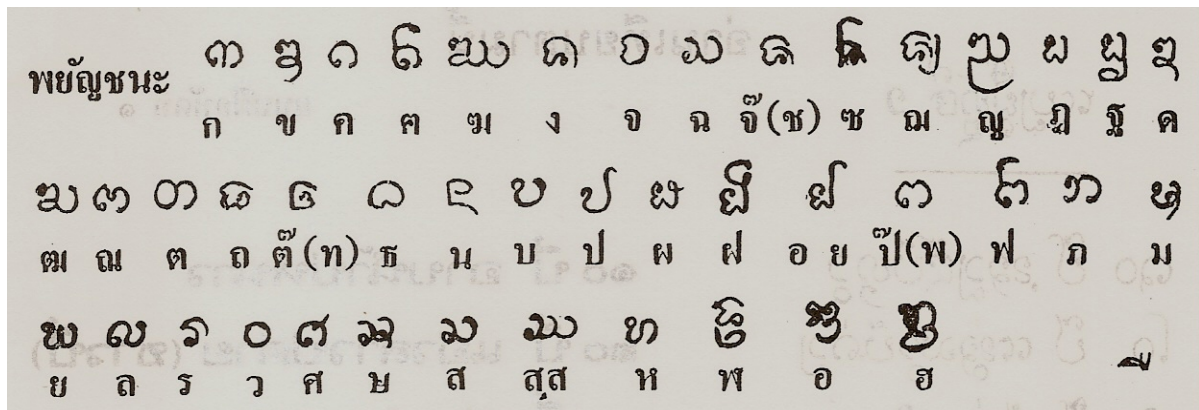 พยัญชนะ ᨠ ᨡ ᨣ ᨤ ᨥ ᨦ ᨧ ᨨ ᨩ ᨪ ᨫ ᨬ ᨭ ᨮ ᨯ
ก ข ค ฅ ฆ ง จ ฉ จ๊(ช) ซ ฌ ญ ฏ ฐ ด
ᨰ ᨱ ᨲ ᨳ ᨴ ᨵ ᨶ ᨷ ᨸ ᨹ ᨺ ᩀ ᨻ ᨼ ᨽ ᨾ
ฒ ณ ต ถ ต๊(ท) ธ น บ ป ผ ฝ อย ป๊(พ) ฟ ภ ม
ᨿ ᩃ ᩁ ᩅ ᩆ ᩇ ᩈ ᩔ ᩉ ᩊ ᩋ ᩌ
ย ล ร ว ศ ษ ส สุส ห ฬ อ ฮ